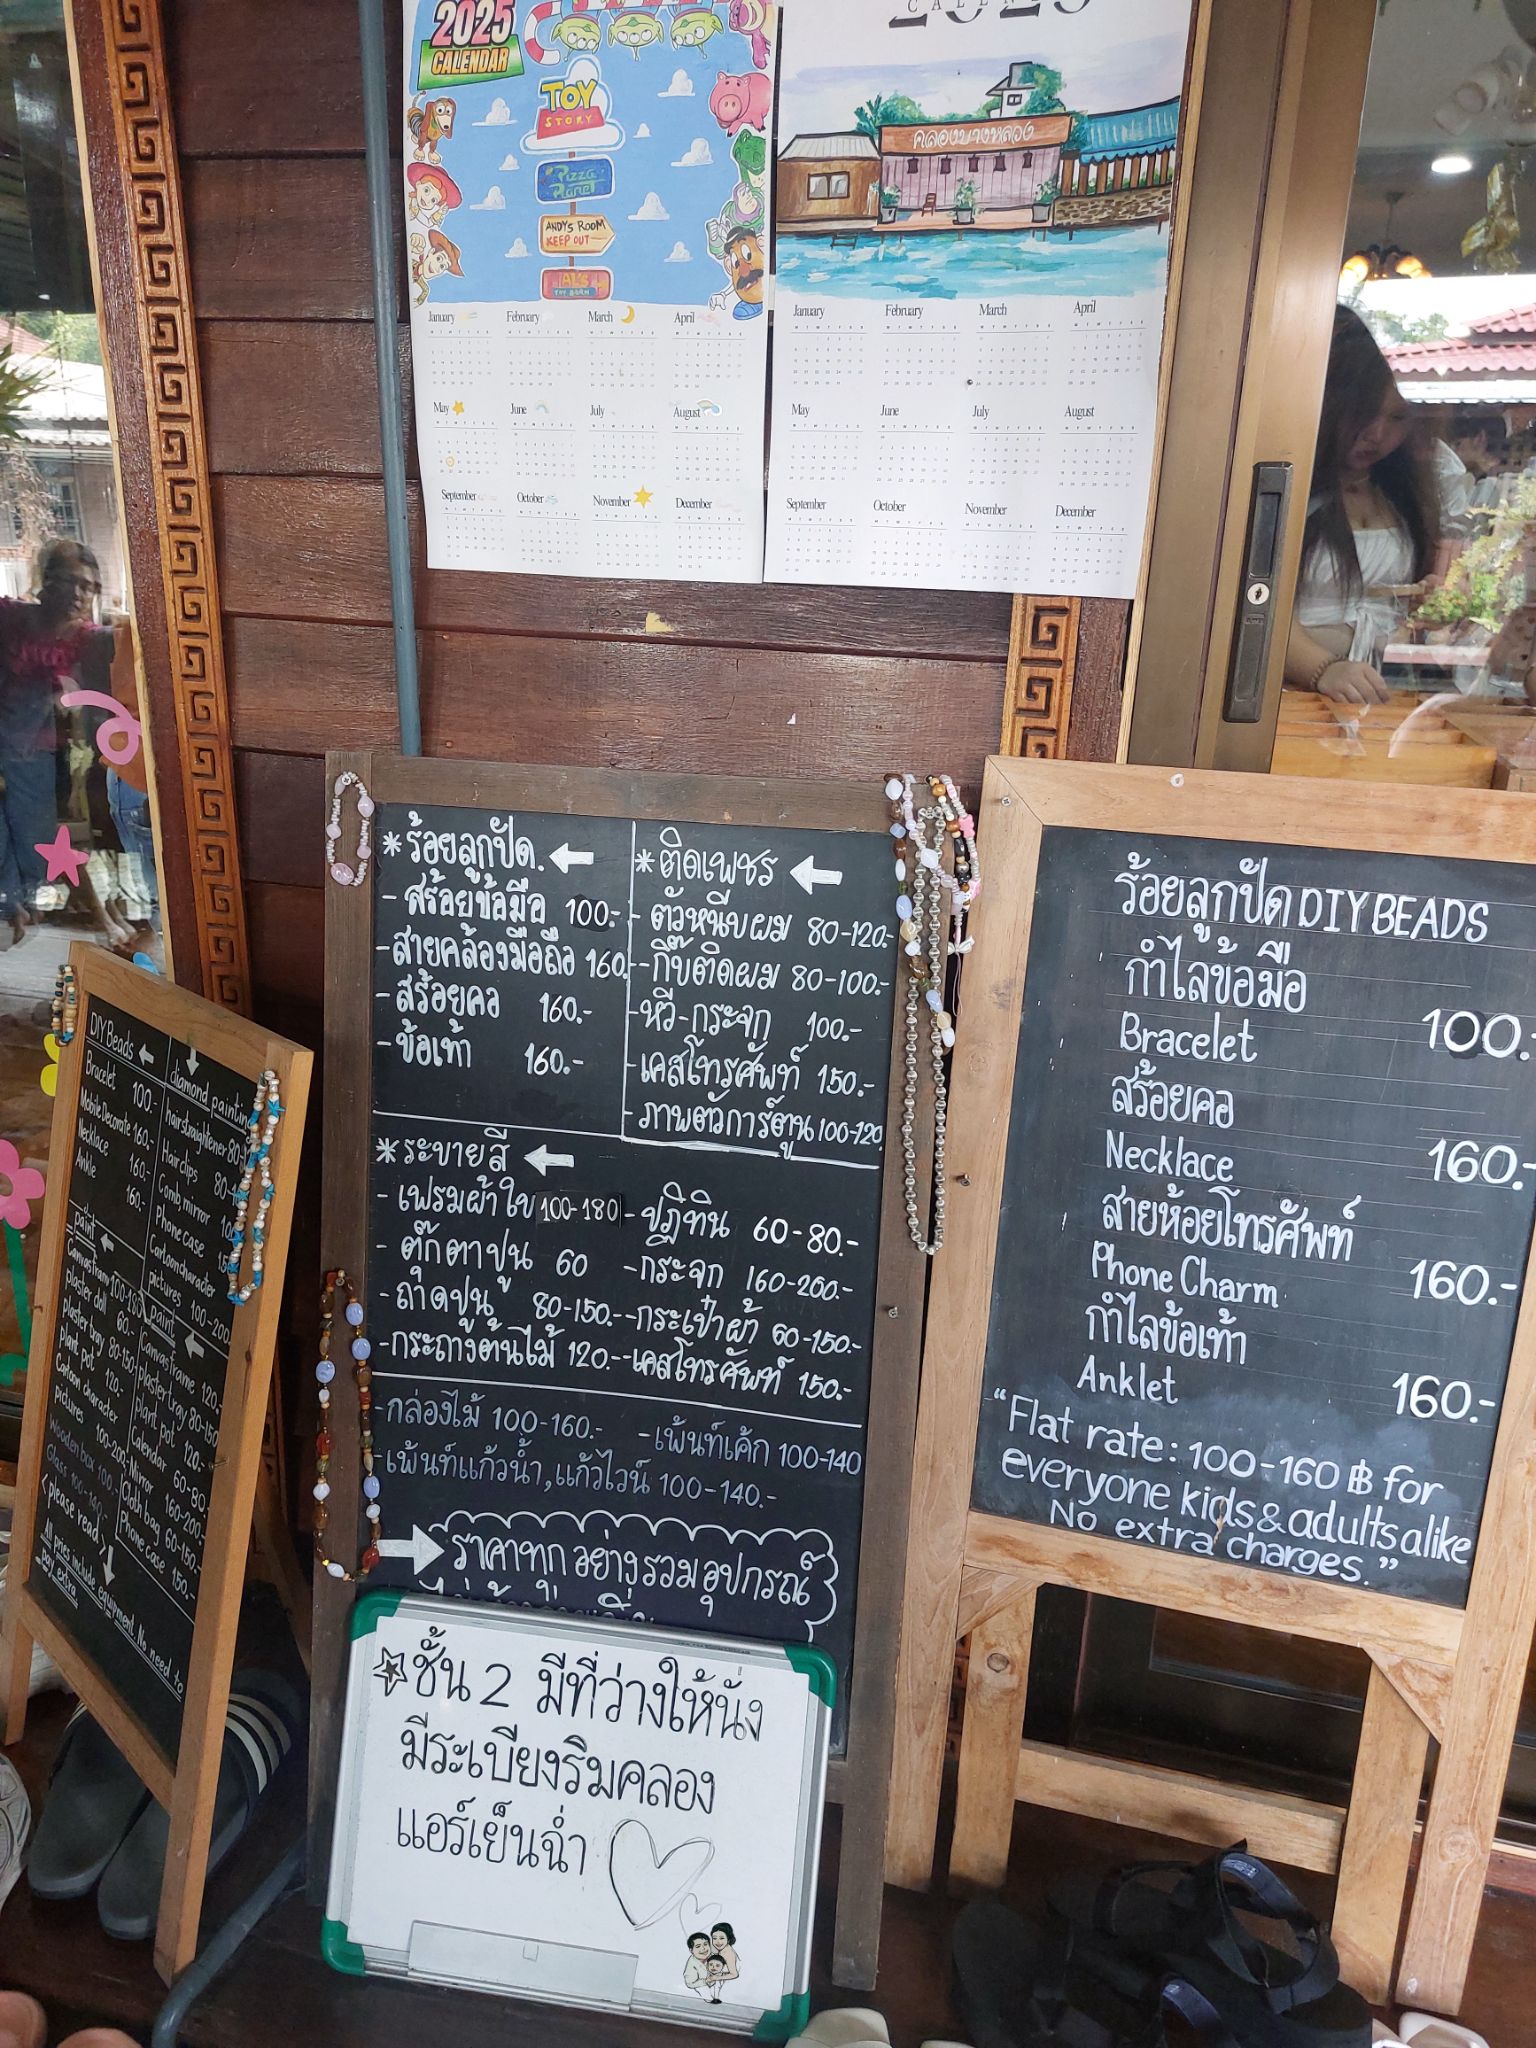 2025
CALENDAR
TOY
STORY
Pizza
Planet
ANDY'S ROOM
KEEP OUT
AL'S
TOY BARN
January February March April
May June July August
September October November December
CALEN
คลองบางหลวง
January February March April
May June July August
September October November December
DIY Beads
Bracelet 100.-
Mobile Decorate 160.-
Necklace 160.-
Ankle 160.-
diamond painting
hair straightener 80-
Hair clips 80-
Comb, mirror
Phone case
Cartoon character
pictures 100-200
paint
Canvas frame 100-180
plaster doll 60.-
plaster tray 80-150
plant pot 120.-
Cartoon character
pictures 100-200
Wooden box 100.-
Glass 100-140.-
paint
Canvas frame 120.-
plaster tray 80-150
plant pot 120.-
Calendar 60-80.-
Mirror 160-200.-
Cloth bag 60-150.-
Phone case 150.-
<please read>
All pries include equipment. No need to
pay extra
*ร้อยลูกปัด.
- สร้อยข้อมือ 100.-
- สายคล้องมือถือ 160
- สร้อยคอ 160.-
- ข้อเท้า 160.-
*ติดเพชร
- ตัวหนีบผม 80-120.-
- กิ๊บติดผม 80-100.-
- หวี-กระจก 100.-
- เคสโทรศัพท์ 150.-
- ภาพตัวการ์ตูน 100-120
*ระบายสี
- เฟรมผ้าใบ 100-180 - ปฏิทิน 60-80.-
- ตุ๊กตาปูน 60 - กระจก 160-200.-
- ถาดปูน 80-150.- - กระเป๋าผ้า 60-150.-
- กระถางต้นไม้ 120.- - เคสโทรศัพท์ 150.-
- กล่องไม้ 100-160.- - เพ้นท์เค้ก 100-140
- เพ้นท์แก้วน้ำ, แก้วไวน์ 100-140.-
ราคาทุกอย่างรวมอุปกรณ์
☆ชั้น 2 มีที่ว่างให้นั่ง
มีระเบียงริมคลอง
แอร์เย็นฉ่ำ
ร้อยลูกปัด DIY BEADS
กำไลข้อมือ
Bracelet 100.-
สร้อยคอ
Necklace 160.-
สายห้อยโทรศัพท์
Phone Charm 160.-
กำไลข้อเท้า
Anklet 160.-
"Flat rate: 100-160 ฿ for
everyone kids & adults alike
No extra charges."